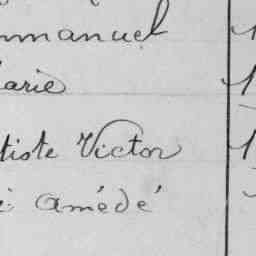 mmanuel
arie
tiste Victor
é Amédé